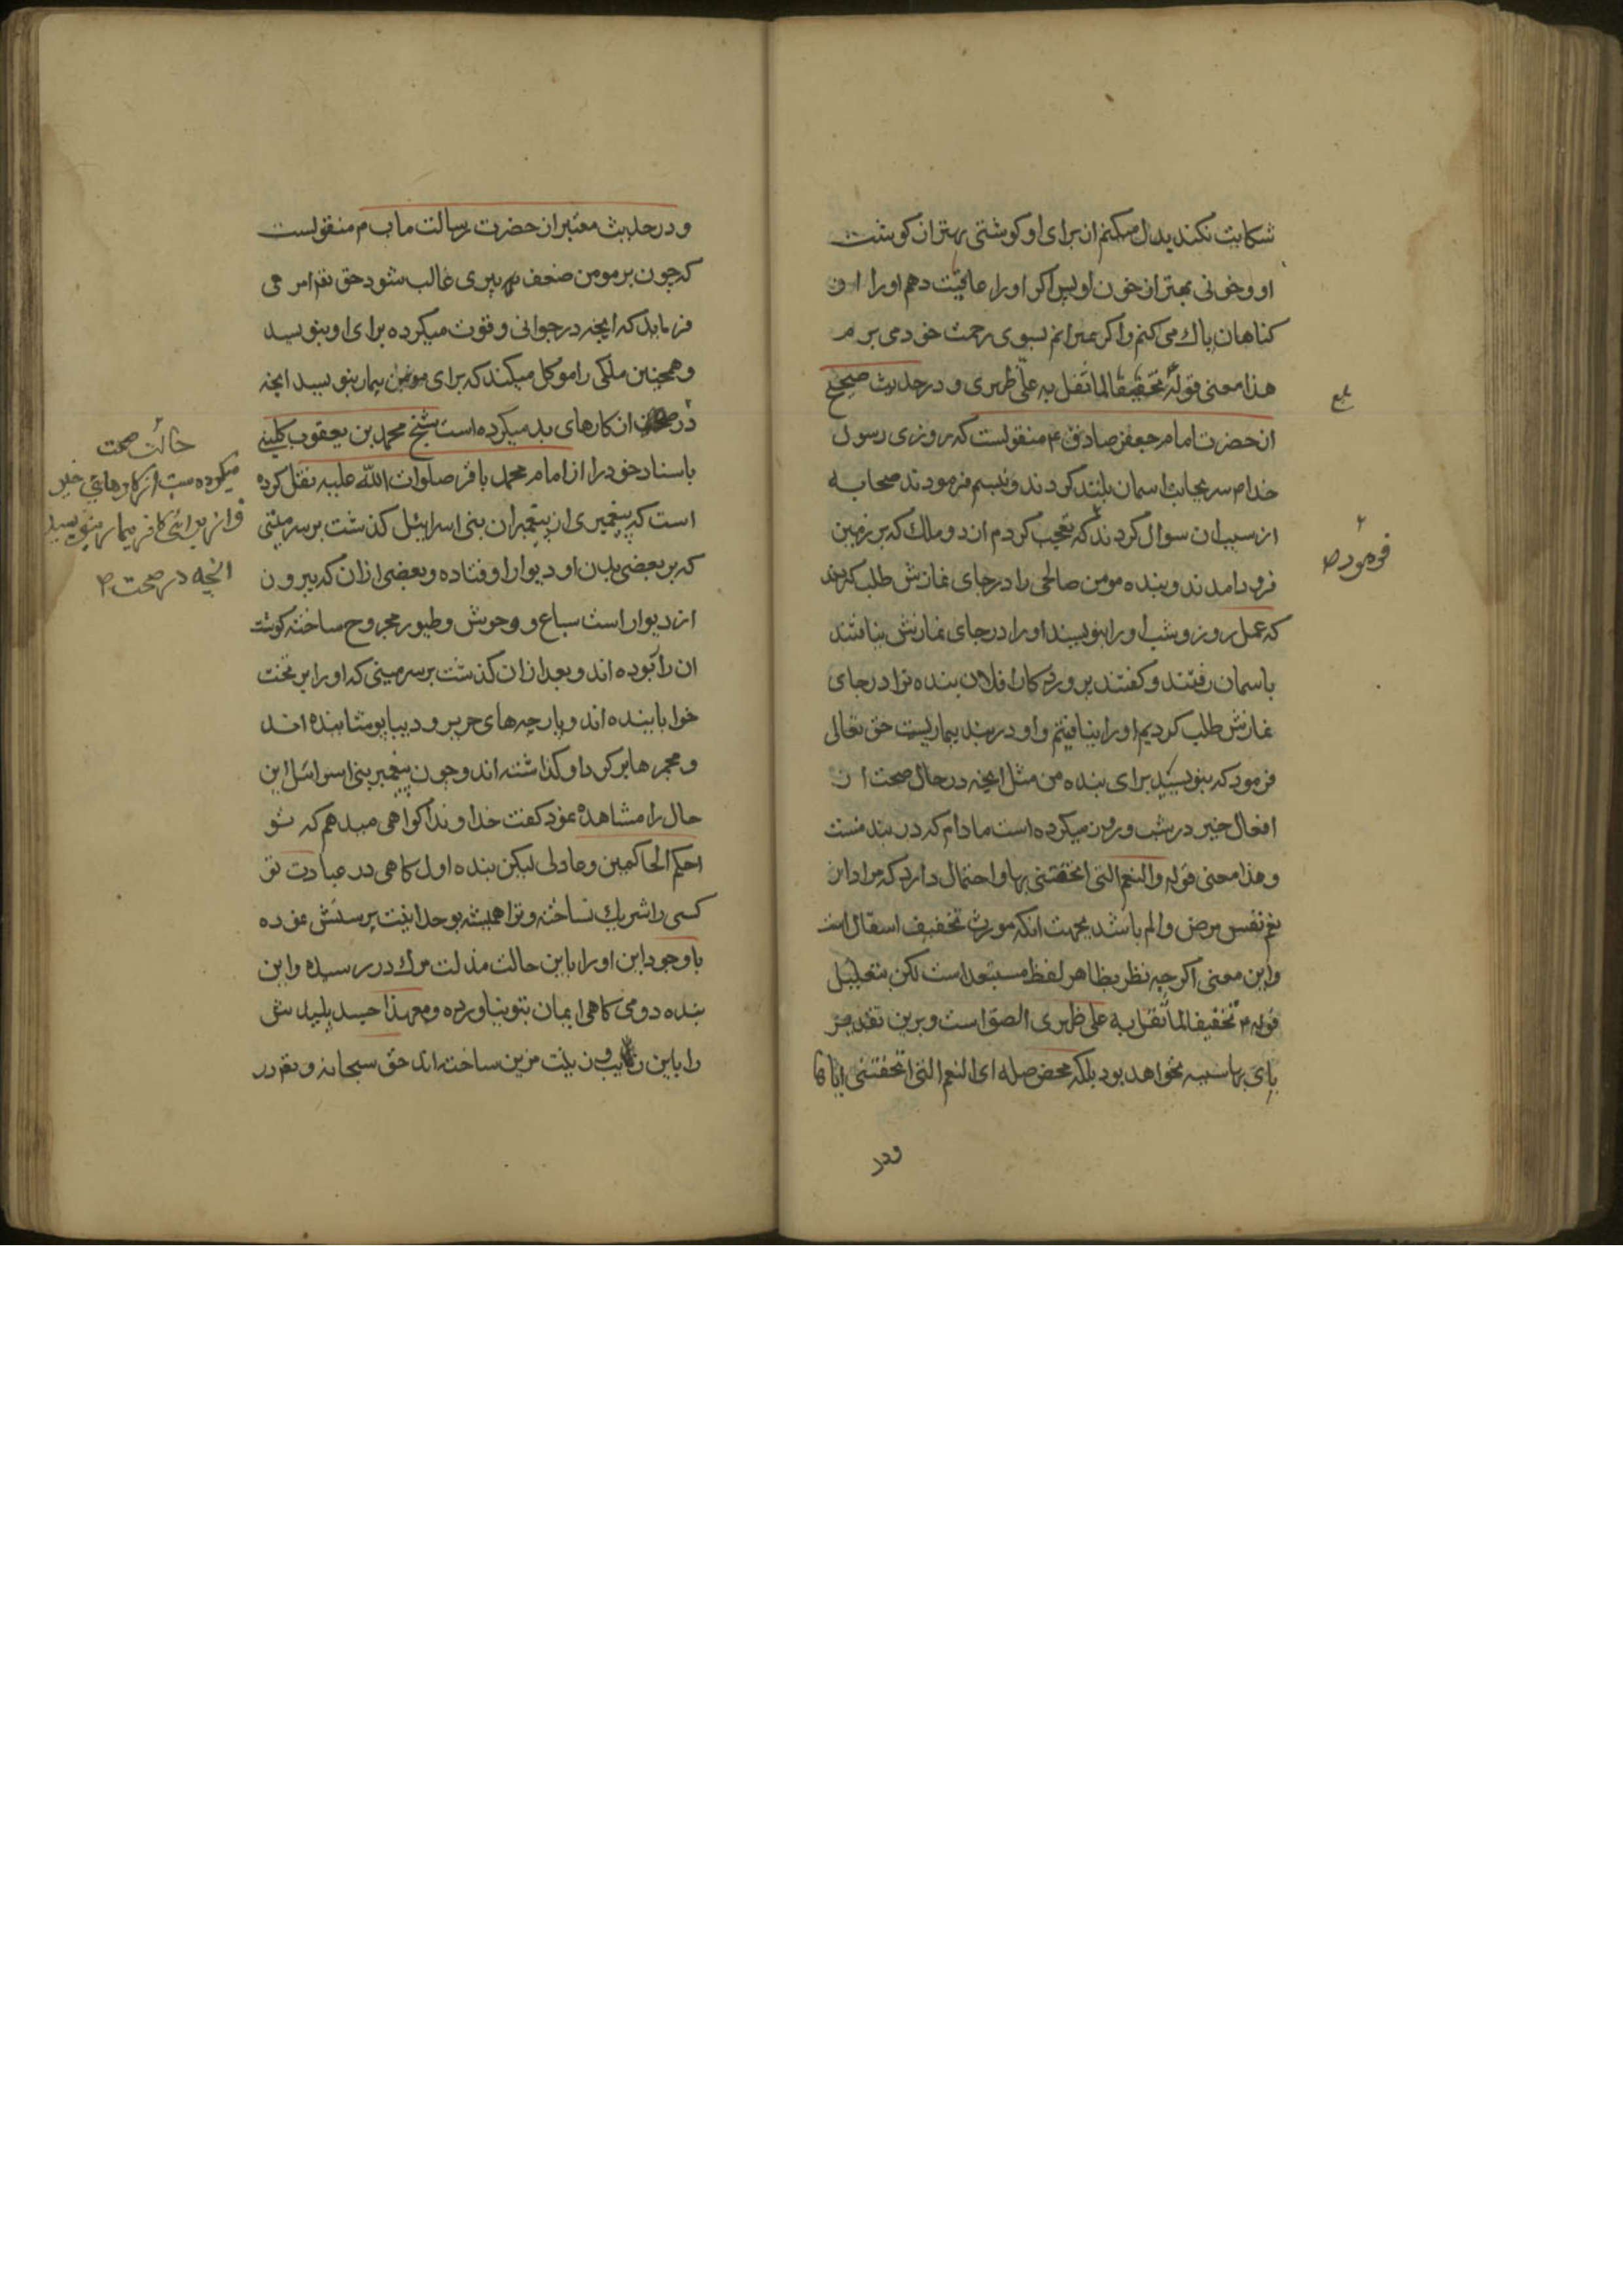 شکایت نکند بدل میکنم ازبرای او کوشتی بهتر از کوشت
او و خونی بهتر از خون او پس اکر اورا عافیت دهم اورا از
کناهان پاک می کنم و اکر بمیرانم بسوی رحمت خود می برم
هذا معنی قوله تخفیفا لما ثقل به علی ظهری و در حدیث صحیح
بلغ
از حضرت امام جعفر صادق ع منقولست که روزی رسول
خدا ص سر بجانب اسمان بلند کردند و تبسم فرمودند صحابه
از سبب ان سوال کردند که تعجب کردم از دو ملک که بر زمین
فرمود ص
فرود امدند و بنده مومن صالحی را در جای نمازش طلب کردند
که عمل روز و شب اورا بنویسند اورا در جای نمازش نیافتند
باسمان رفتند و کفتند پروردکارا فلان بنده ترا در جای
نمازش طلب کردیم اورا نیافتیم و او در بند بیماریست حق تعالی
فرمود که بنویسید برای بنده من مثل انچه در حال صحت از
افعال خیر در شب و روز میکرده است مادام که در بند منست
و هذا معنی قوله والنعم التی اتحفتنی بها و احتمال دارد که مراد از
نعم نفس مرض و الم باشد بجهت انکه مورث تخفیف اثقال است
و این معنی اکرچه نظر بظاهر لفظ مستبعد است لکن بتعلیل
قوله ع تخفیفا لما ثقل به علی ظهری الصق است و برین تقدیر
بای بها سببیه نخواهد بود بلکه محض صله ای النعم التی اتحفتنی ایاها
ودر
و در حدیث معتبر از حضرت رسالت ماب م منقولست
که چون بر مومن ضعف پیری غالب شود حق تع امر می
فرماید که انچه در جوانی و قوت میکرده برای او بنویسید
و همچنین ملکی را موکل میکند که برای مومن بیمار بنویسد انچه
در از کارهای بد میکرده است شیخ محمد بن یعقوب کلینی
حالت صحت
میکرده است از کارهای خیر
و از برائی کافر بیمار بنویسد
انچه در صحت
باسناد خود را از امام محمد باقر صلوات الله علیه نقل کرده
است که پیغمبری از پیغمبران بنی اسرائیل کذشت بر سر میتی
که بر بعضی بدن او دیوار اوفتاده و بعضی ازان که بیرون
از دیوار است سباع و وحوش و طیور مجروح ساخته کوشت
ان را ربوده اند و بعد ازان کذشت بر سر میتی که اورا بر تخت
خوابانیده اند و پارچه های حریر و دیبا پوشانیده اند
و مجمرها بر کرد او کذاشته اند و چون پیغمبر بنی اسرائیل این
حال را مشاهده نمود کفت خداوندا کواهی میدهم که تو
احکم الحاکمین و عادلی لیکن بنده اول کاهی در عبادت تو
کسی را شریک نساخته و ترا همیشه بوحدانیت پرستش نموده
با وجود این اورا باین حالت مذلت مرک در رسیده و این
بنده دومی کاهی ایمان بتو نیاورده و معهذا جسد پلیدش
را باین زیب و زینت مزین ساخته اند حق سبحانه و تع در